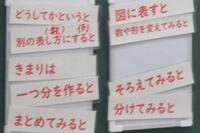 どうしてかというと
(数) (例)
別の表し方にすると
きまりは
一つ分を作ると
まとめてみると
図に表すと
数や形を変えてみると
そろえてみると
分けてみると